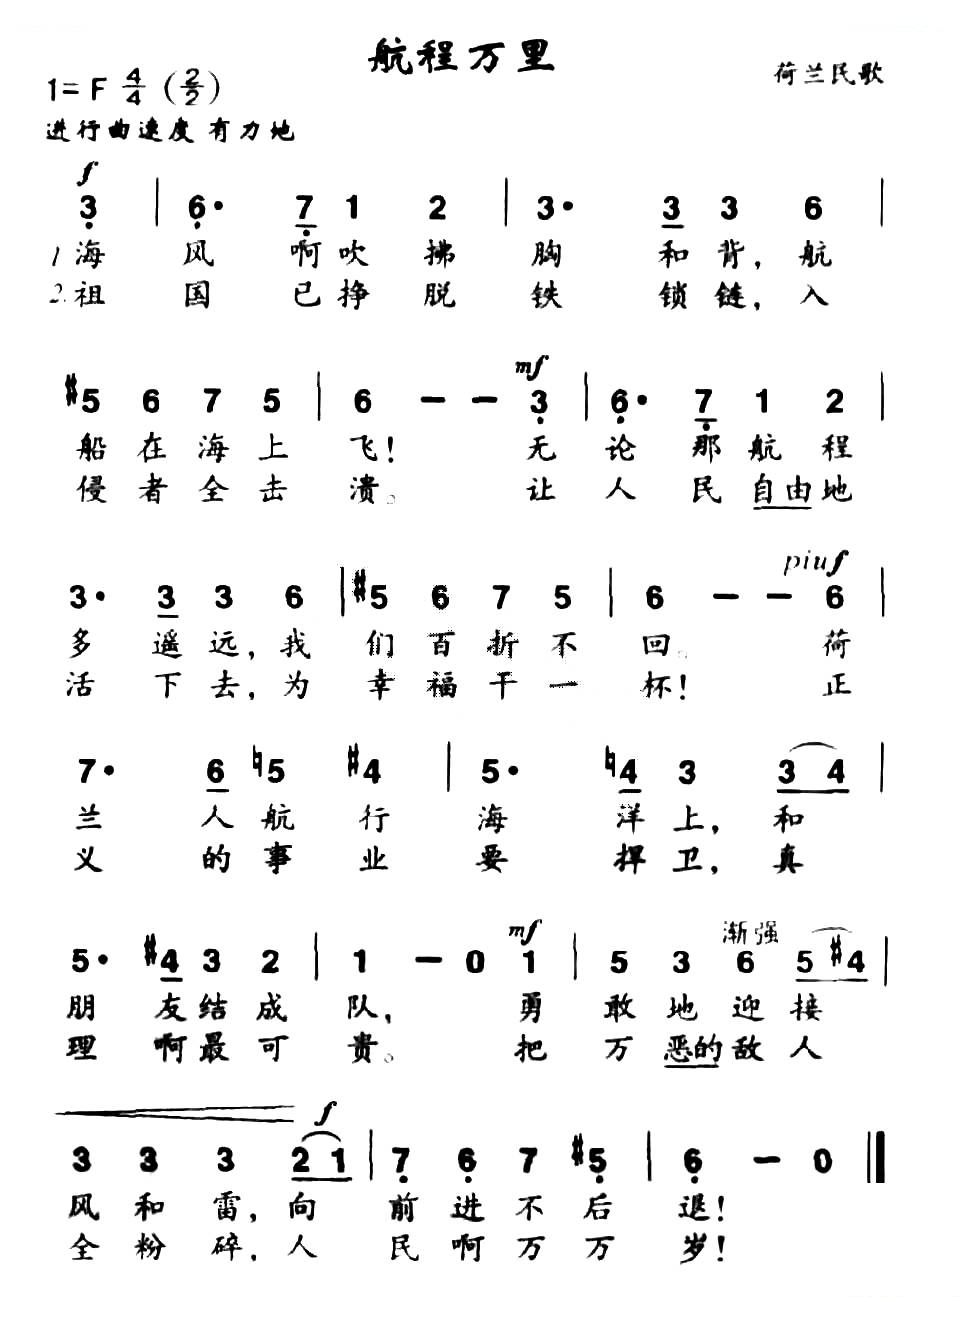 航程万里
1= F 4/4 (2/2)
荷兰民歌
进行曲速度 有力地
f
3 | 6· 7 1 2 | 3· 3 3 6 |
1 海 风 啊 吹 拂 胸 和 背, 航
2. 祖 国 已 挣 脱 铁 锁 链, 入
mf
#5 6 7 5 | 6 － － 3 | 6· 7 1 2 |
船 在 海 上 飞! 无 论 那 航 程
侵 者 全 击 溃。 让 人 民 自由 地
piuf
3· 3 3 6 | #5 6 7 5 | 6 － － 6 |
多 遥 远, 我 们 百 折 不 回。 荷
活 下 去, 为 幸 福 干 一 杯! 正
7· 6 ♮5 #4 | 5· ♮4 3 3 4 |
兰 人 航 行 海 洋 上, 和
义 的 事 业 要 捍 卫, 真
mf 渐强
5· #4 3 2 | 1 － 0 1 | 5 3 6 5 #4 |
朋 友 结 成 队, 勇 敢 地 迎 接
理 啊 最 可 贵。 把 万 恶的 敌 人
f
3 3 3 2 1 | 7 6 7 #5 | 6 － 0 ‖
风 和 雷, 向 前 进 不 后 退!
全 粉 碎, 人 民 啊 万 万 岁!